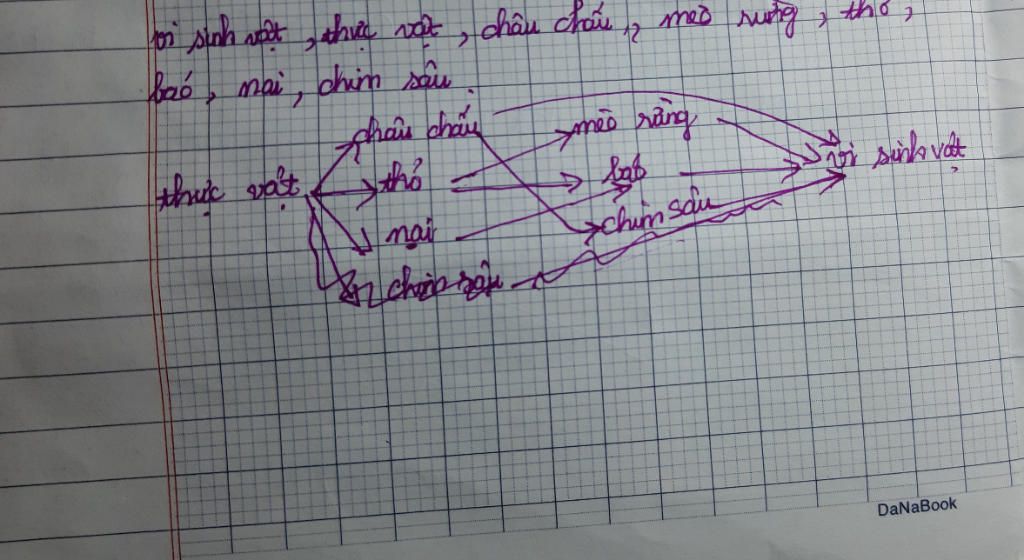 vi sinh vật, thực vật, châu chấu, mèo rừng, thỏ,
báo, nai, chim sâu.
châu chấu mèo rừng
thực vật thỏ báo vi sinh vật
nai chim sâu
chim sâu
DaNaBook